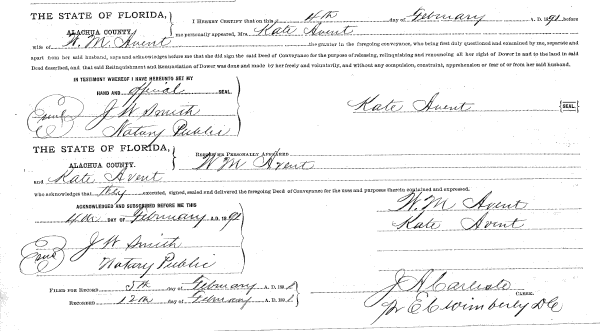 THE STATE OF FLORIDA,
ALACHUA COUNTY.
I HEREBY CERTIFY that on this 4th day of February A. D. 1891, before
me personally appeared, Mrs. Kate Avent
wife of W. M. Avent the grantor in the foregoing conveyance, who being first duly questioned and examined by me, separate and
apart from her said husband, says and acknowledges before me that she did sign the said Deed of Conveyance for the purpose of releasing, relinquishing and renouncing all her right of Dower in and to the land in said
Deed described, and that said Relinquishment and Renunciation of Dower was done and made by her freely and voluntarily, and without any compulsion, constraint, apprehension or fear of or from her said husband.
IN TESTIMONY WHEREOF I HAVE HEREUNTO SET MY
HAND AND official SEAL.
Seal
J W Smith
Notary Public
Kate Avent SEAL.
THE STATE OF FLORIDA,
ALACHUA COUNTY.
BEFORE ME PERSONALLY APPEARED W M Avent
and Kate Avent
who acknowledges that they executed, signed, sealed and delivered the foregoing Deed of Conveyance for the uses and purposes therein contained and expressed.
ACKNOWLEDGED AND SUBSCRIBED BEFORE ME THIS
4th DAY OF February A. D. 1891
W. M Avent
Kate Avent
Seal
J W Smith
Notary Public
FILED FOR RECORD 5th day of February A. D. 1891
RECORDED 12th day of February A. D. 1891
J A Carlisle
CLERK.
pr E C Wimberly DC